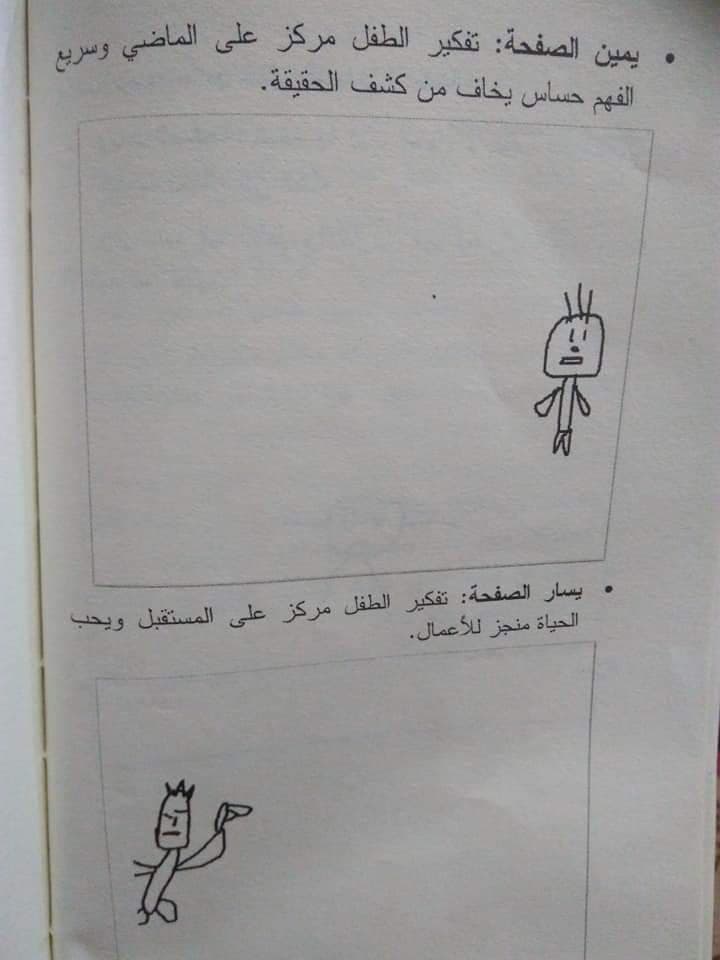 • يمين الصفحة: تفكير الطفل مركز على الماضي وسريع
الفهم حساس يخاف من كشف الحقيقة.
• يسار الصفحة: تفكير الطفل مركز على المستقبل ويحب
الحياة منجز للأعمال.